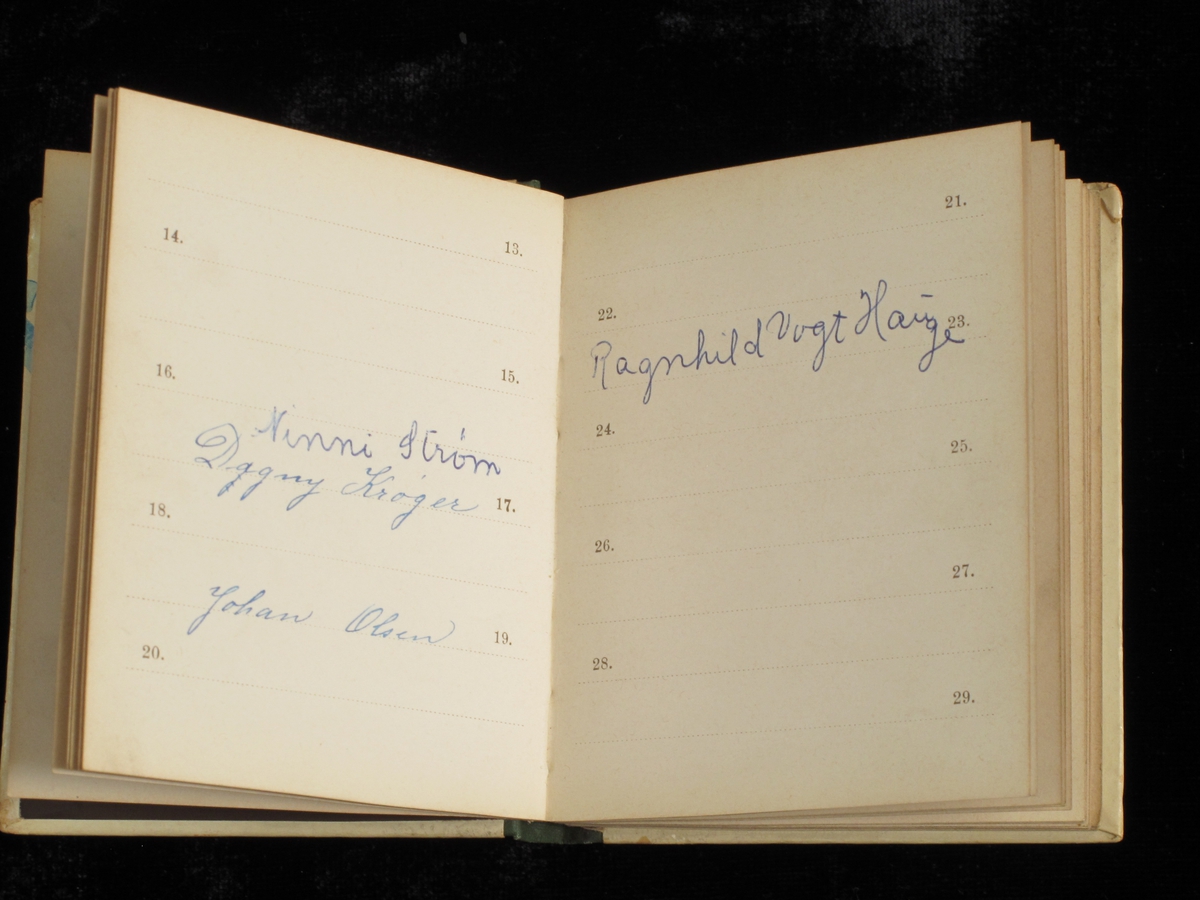 13.
14.
15.
16.
Ninni Strøm
Dggny Krøger 17.
18.
Johan Olsen 19.
20.
21.
22.
Ragnhild Vogt Hauge 23.
24.
25.
26.
27.
28.
29.